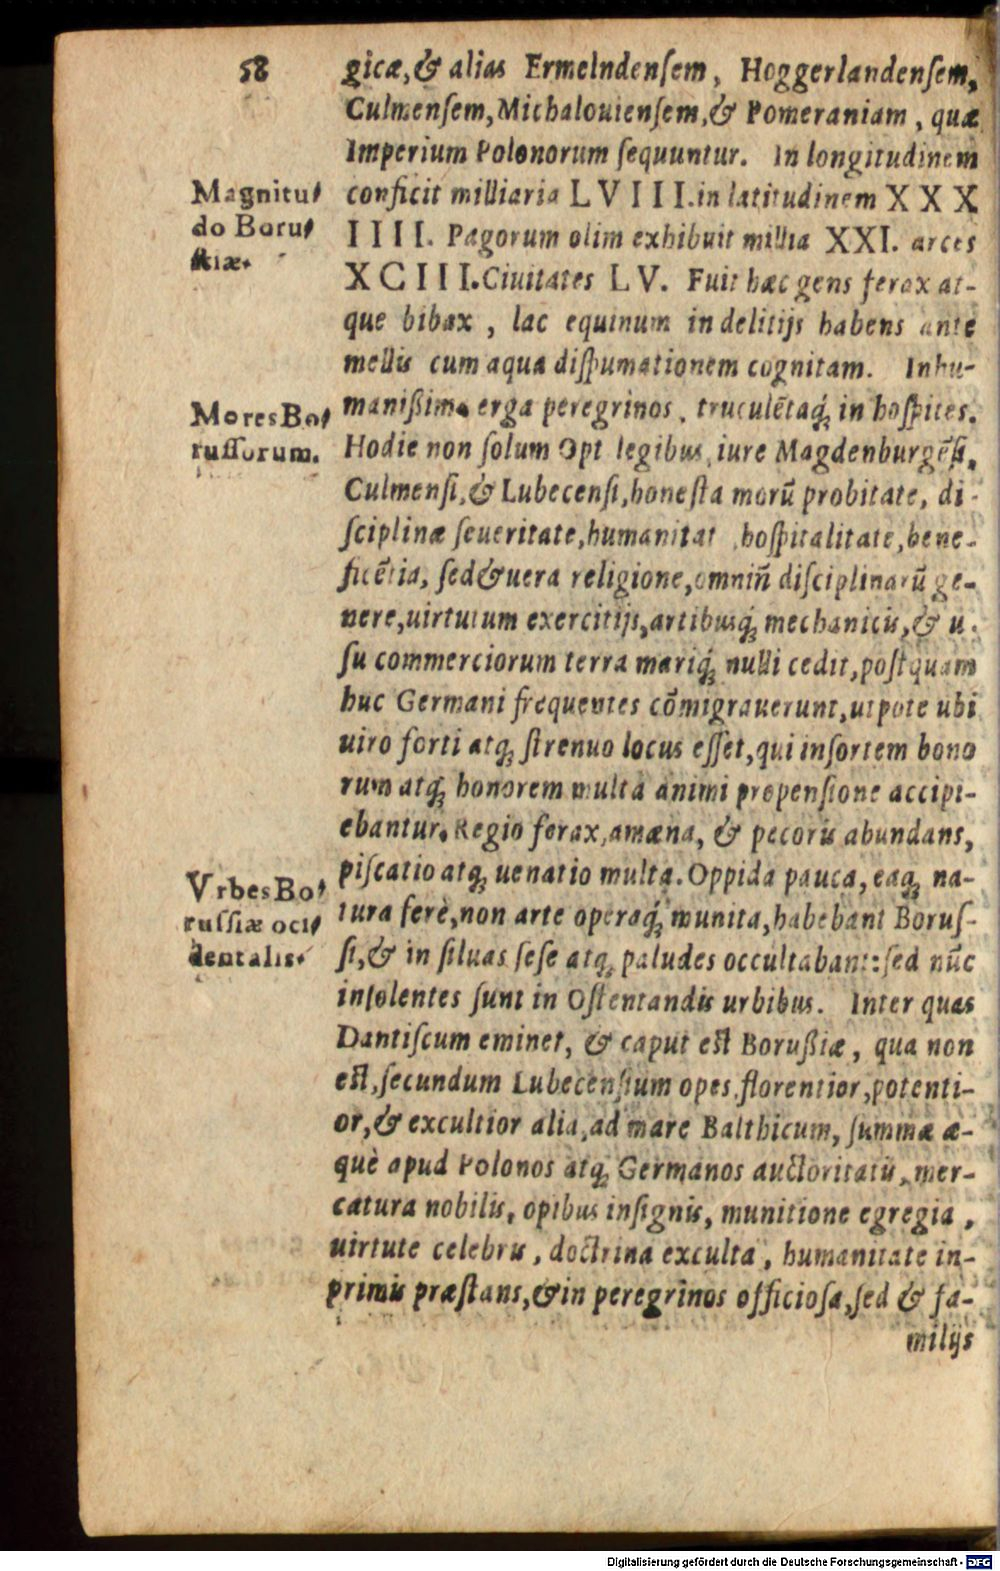 58
gicæ, & alias Ermelndenſem, Hoggerlandenſem,
Culmenſem, Michalouienſem, & Pomeraniam, quæ
Imperium Polonorum ſequuntur. In longitudinem
Magnitu-
conficit milliaria L V I I I. in latitudinem X X X
do Boru-
I I I I. Pagorum olim exhibuit millia XXI. arces
ſſiæ.
X C I I I. Ciuitates L V. Fuit hæc gens ferax at-
que bibax, lac equinum in delitijs habens ante
mellis cum aqua diſpumationem cognitam. Inhu-
Mores Bo-
manißima erga peregrinos, truculẽtaq́ꝫ in hoſpites.
ruſſorum.
Hodie non ſolum Opt legibus, iure Magdenburgẽſi,
Culmenſi, & Lubecenſi, honeſta morũ probitate, di-
ſciplinæ ſeueritate, humanitat , hoſpitalitate, bene-
ficẽtia, ſed & uera religione, omniũ diſciplinarũ ge-
nere, uirtutum exercitijs, artibusq́ꝫ mechanicis, & u-
ſu commerciorum terra mariq́ꝫ nulli cedit, poſtquam
huc Germani frequentes cõmigrauerunt, utpote ubi
uiro forti atqꝫ ſtrenuo locus eſſet, qui inſortem bono
rum atq́ꝫ honorem multa animi propenſione accipi-
ebantur. Regio ferax, amæna, & pecoris abundans,
Vrbes Bo-
piſcatio atqꝫ uenatio multa. Oppida pauca, eaqꝫ na-
ruſſiæ oci-
tura ferè, non arte operaq́ꝫ munita, habebant Boruſ-
dentalis.
ſi, & in ſiluas ſeſe atqꝫ paludes occultabant: ſed nũc
inſolentes ſunt in Oſtentandis urbibus. Inter quas
Dantiſcum eminet, & caput eſt Borußiæ, qua non
eſt, ſecundum Lubecenſium opes, florentior, potenti-
or, & excultior alia, ad mare Balthicum, ſummæ æ-
què apud Polonos atqꝫ Germanos auctoritatis, mer-
catura nobilis, opibus inſignis, munitione egregia,
uirtute celebris, doctrina exculta, humanitate in-
primis præſtans, & in peregrinos officioſa, ſed & fa-
milijs
Digitalisierung gefördert durch die Deutsche Forschungsgemeinschaft - DFG